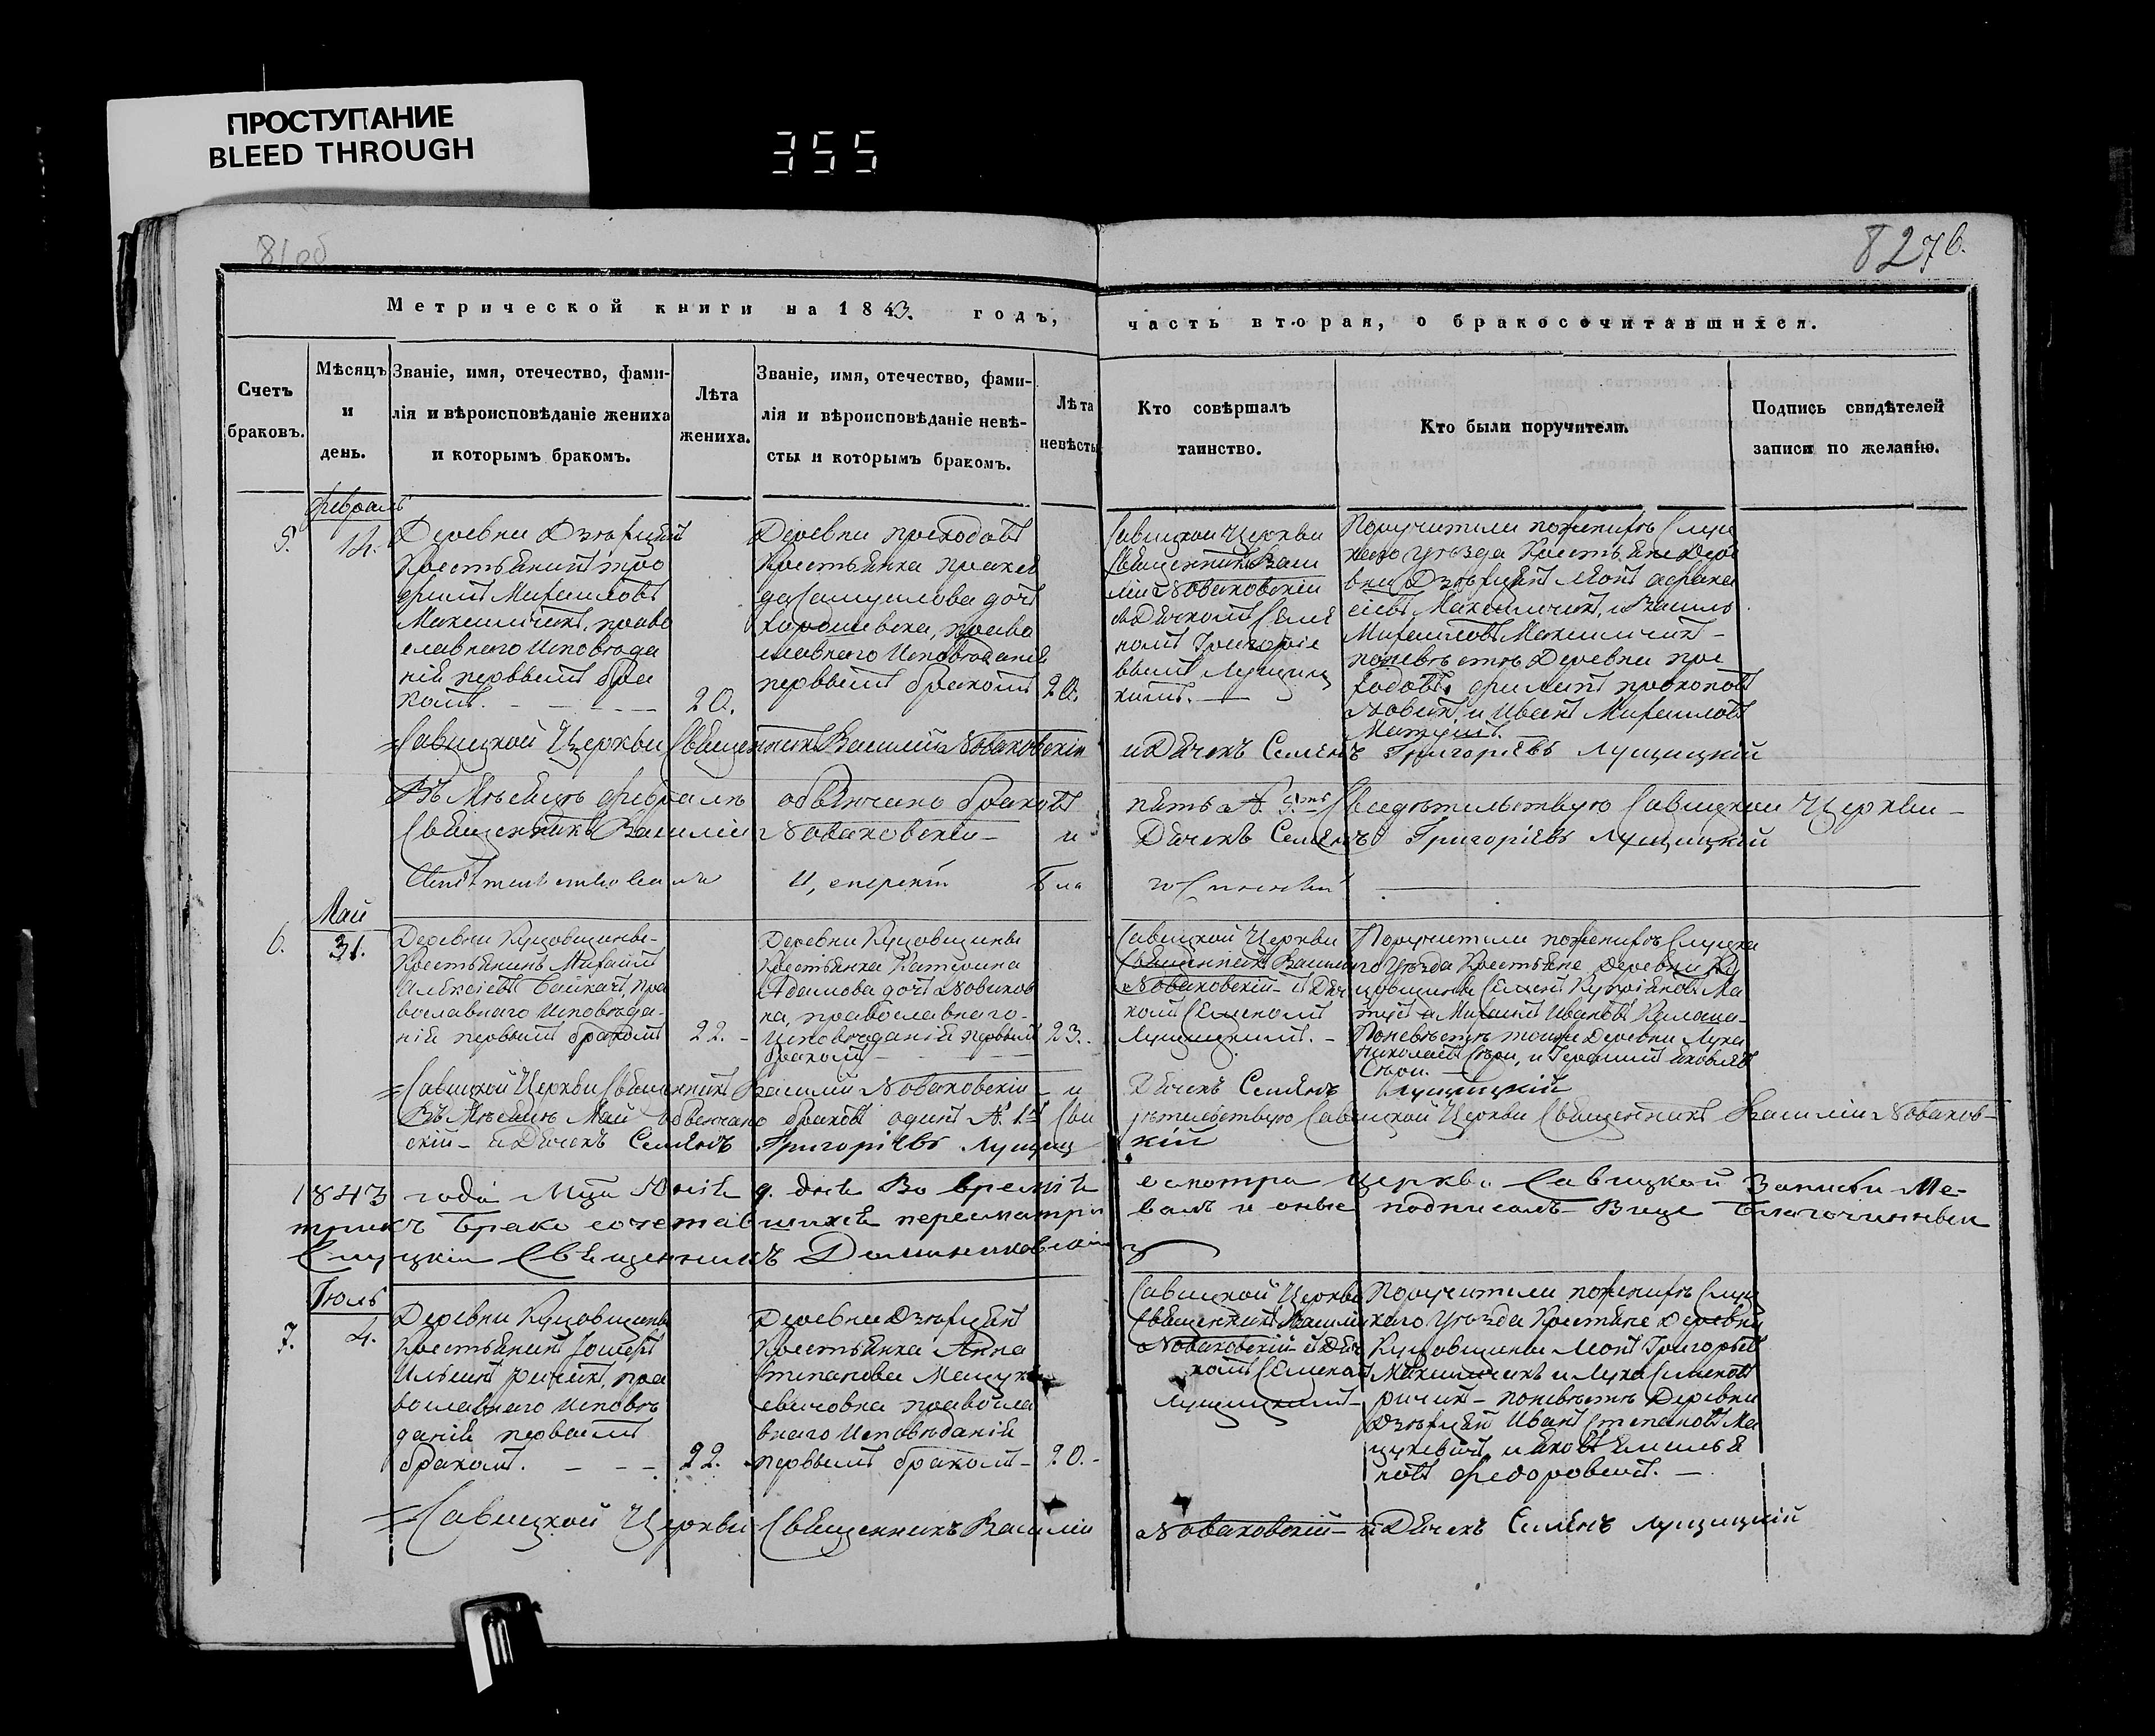 ПРОСТУПАНИЕ
BLEED THROUGH
355
81 об
827б.
Метрической книги на 1843. годъ,
часть вторая, о бракосочитавшихся.
Счетъ
браковъ.
Мѣсяцъ
и
день.
Званіе, имя, отечество, фами-
лія и вѣроисповѣданіе жениха
и которымъ бракомъ.
Лѣта
жениха.
Званіе, имя, отечество, фами-
лія и вѣроисповѣданіе невѣ-
сты и которымъ бракомъ.
Лѣта
невѣсты
Кто совѣршалъ
таинство.
Кто были поручители.
Подпись свидѣтелей
записи по желанію.
Февраль
5.
14.
Деревни
Крестьянинъ Тро
фимъ Михаиловъ
Максимчикъ, право
славнаго Исповѣда
нія первымъ бра
комъ.
20.
Деревни
Крестьянка Праксе
да Самуилова дочь
право
славнаго Исповѣданія
первымъ бракомъ
20.
Савицкой Церкви
Священникъ Васи
лій Новаковскій
съ Дячкомъ Семе
номъ Григорие
вымъ Лущиц
кимъ.
Поручители по женихѣ Слуц
каго уѣзда Крестьяне Дере
вни
Максимчикъ, и Василь
Михаиловъ Максимчикъ -
по невѣстѣ Деревни
Филипъ Прокоповъ
Новикъ и Иванъ Михаиловъ
=Савицкой Церкви Священникъ Василій Новаковскій и Дячекъ Семенъ Григоріевъ Лущицкій
Въ Мѣсяцѣ Февралѣ обвѣнчано браковъ пять №. 5. Свидѣтельствую Савицкой Церкви -
Священникъ Василій Новаковскій - и Дячекъ Семенъ Григоріевъ Лущицкій
Май
6.
31.
Деревни Куцовщины -
Крестьянинъ Михаилъ
Алексіевъ Байкачъ, пра
вославнаго Исповѣда-
нія первымъ бракомъ
22. -
Деревни Куцовщины
Крестьянка Катерина
Адамова дочь Новиков
на, православнаго -
Исповѣданія первымъ
бракомъ
23. -
Савицкой Церкви
Священникъ Васили
Новаковскій - и Дяч
комъ Семеномъ
Лущицкимъ. -
Поручители по женихѣ Слуцка
го уѣзда Крестьяне Деревни Ку
цовщины Семенъ
и Михаилъ Ивановъ
По невѣстѣ тойже Деревни Лука
Николаевъ
=Савицкой Церкви Священникъ Василій Новаковскій - и Дячекъ Семенъ Лущицкій
Въ Мѣсяцѣ Май обвенчано браковъ одинъ №. 1й Сви дѣтельствую Савицкой Церкви Священникъ Василій Новаков-
скій - и Дячекъ Семенъ Григоріевъ Лущиц кій
1843 года Мца Юнія 9. дня Во время осмотра Церкви Савицкой Записи Ме-
трикъ Брако сочетавшихся пересматри валъ и оные подписалъ Вице Благочинный
Слуцкій Священникъ
Іюль
7.
4.
Деревни Куцовщины
Крестьянинъ
Ильинъ Ричикъ, пра
вославнаго Исповѣ
данія первымъ
бракомъ. - - -
22.
Деревни
Крестьянка Анна
Степанова Мацук
евичовна правосла
внаго Исповѣданія
первымъ бракомъ -
20. -
Савицкой Церкви
Священникъ Василій
Новаковскій - и Дяч
комъ Семеномъ
Лущицкимъ -
Поручители по женихѣ Слуц
каго уѣзда Крестьяне Деревни
Куцовщины Леонъ Григорьевъ
Максимчикъ и Лука Симоновъ
Ричикъ - по невѣстѣ Деревни
Иванъ Степановъ Ма
цукевичъ, и Яковъ Емелья
новъ Федоровичъ. -
=Савицкой Церкви Священникъ Василій Новаковскій - и Дячекъ Семенъ Лущицкій